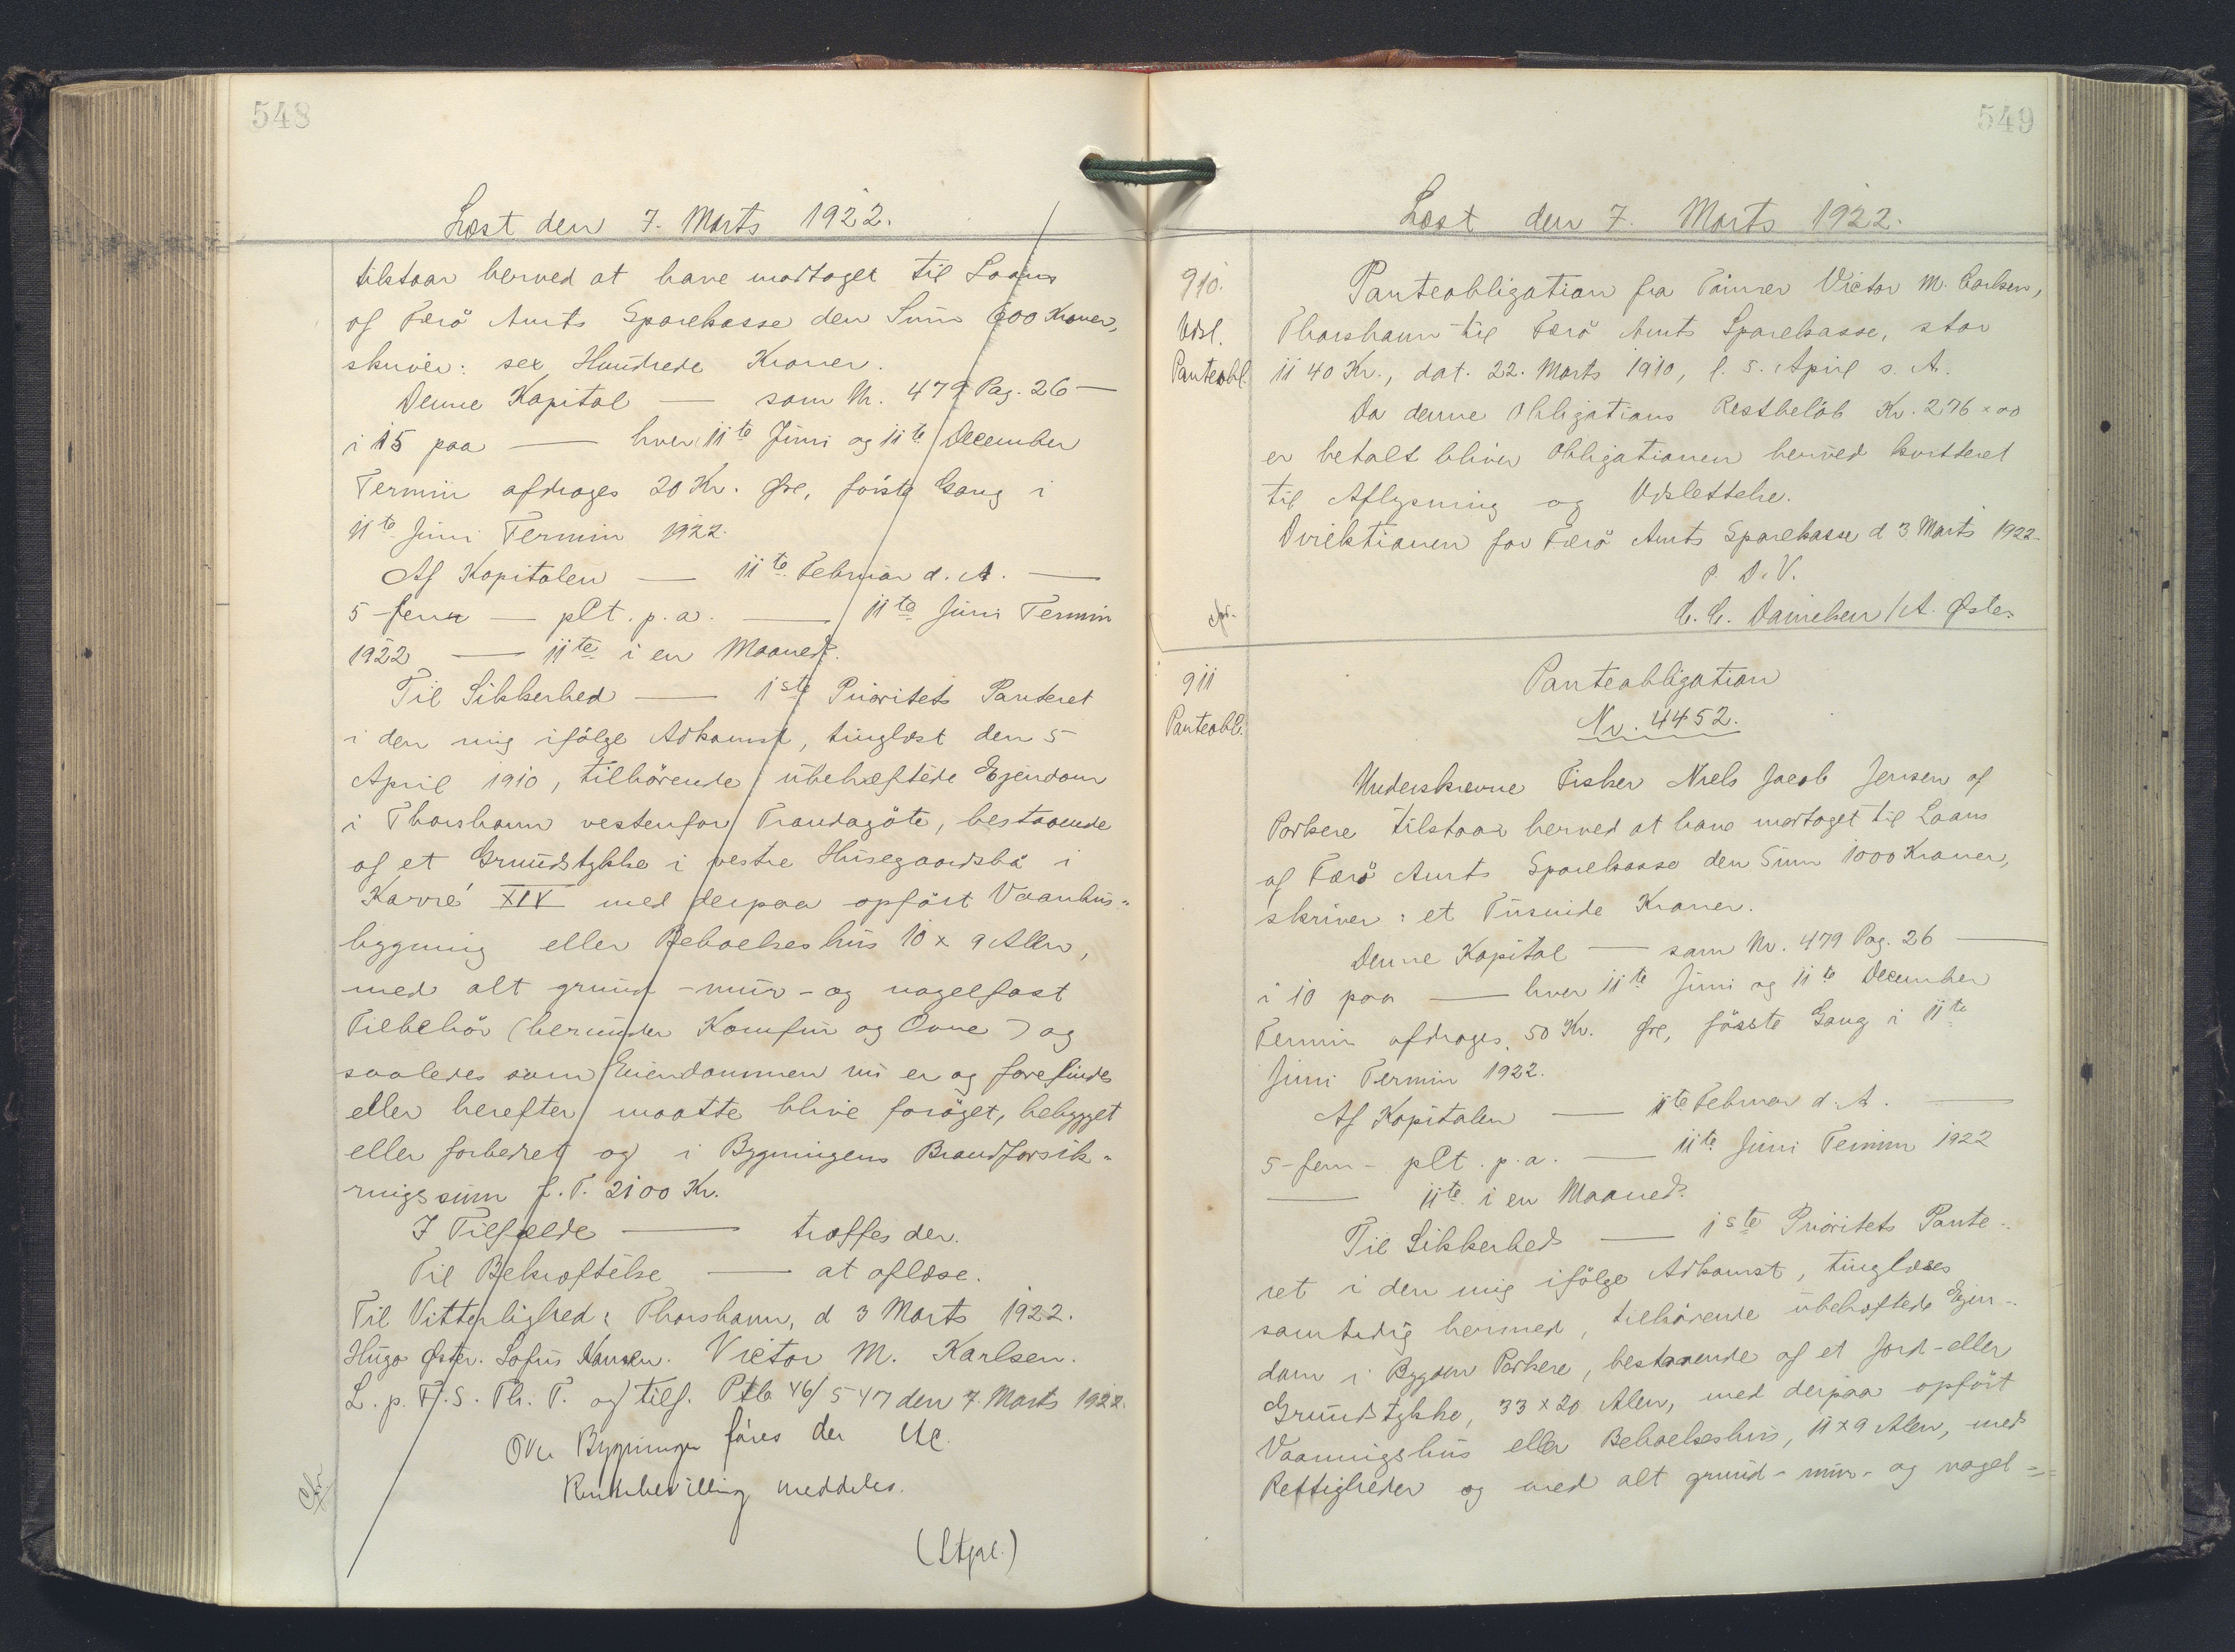 548
Læst den 7. Marts 1922.
tilstaar herved at have modtaget til Laans
af Færö Amts Sparekasse den Sum 600 Kroner,
skriver: sex Hundrede Kroner.
Denne Kapital — som Nr. 479 Pag. 26 —
i 15 paa — hver 11te Juni og 11te December
Termin afdrages 20 Kr. Øre, første Gang i
11te Juni Termin 1922.
Af Kapitalen — 11te Februar d. A. —
5 - fem — pCt. p. a. — 11te Juni Termin
1922 — 11te i en Maaned.
Til Sikkerhed — 1ste Prioritets Panteret
i den mig ifölge Adkomst, tinglæst den 5
April 1910, tilhörende ubehæftede Ejendom
i Thorshavn vestenfor Traudagöte, bestaaende
af et Grundstykke i vestre Húsegaardsbö i
Karré XIV med derpaa opfört Vaanhus-
bygning eller Beboelseshus 10 x 9 Alen,
med alt grund - mur - og nagelfast
Tilbehör (herunder Komfur og Ovne) og
saaledes som Eiendommen nu er og forefindes
eller herefter maatte blive foröget, bebygget
eller forbedret og i Bygningens Brandforsik-
ringssum f. T. 2100 Kr.
I Tilfælde — træffes der.
Til Bekræftelse — at aflæse.
Til Vitterlighed: Thorshavn, d 3 Marts 1922.
Hugo Øster. Sofus Hansen. Victor M. Karlsen.
L. p. F. S. Th. T. og tilf. Ptb 46/547 den 7. Marts 1922.
Ove Bygninger føres der
meddeles.
549
Læst den 7. Marts 1922.
910.
Udsl.
Panteobl.
Panteobligation fra Tömrer Victor M. Carlsen,
Thorshavn til Færö Amts Sparekasse, stor
1140 Kr., dat. 22. Marts 1910, l. 5. April s. A.
Da denne Obligations Restbelöb Kr. 276 x 00
er betalt bliver Obligationen herved kvitteret
til Aflysning og Udslettelse.
Direktionen for Færö Amts Sparekasse d 3 Marts 1922.
P. D. V.
C. C. Danielsen / A. Øster.
911
Panteobl.
Panteobligation
Nr. 4452.
Underskrevne Fisker Niels Jacob Jensen af
Porkere tilstaar herved at have modtaget til Laans
af Færö Amts Sparekasse den Sum 1000 Kroner,
skriver: et Tusinde Kroner.
Denne Kapital — som Nr. 479 Pag. 26 —
i 10 paa — hver 11te Juni og 11te December
Termin afdrages 50 Kr. Øre, första Gang i 11te
Juni Termin 1922.
Af Kapitalen — 11te Februar d. A. —
5 - fem - pCt. p. a. — 11te Juni Termin 1922
— 11te i en Maaned.
Til Sikkerhed — 1ste Prioritets Pante-
ret i den mig ifölge Adkomst, tinglæses
samtidig hermed, tilhörende ubehæftede Ejen-
dom i Bygden Porkere, bestaaende af et Jord - eller
Grundstykke, 33 x 20 Alen, med derpaa opfört
Vaaningshus eller Beboelseshus, 11 x 9 Alen, med
Rettigheder og med alt grund - mur - og nagel =